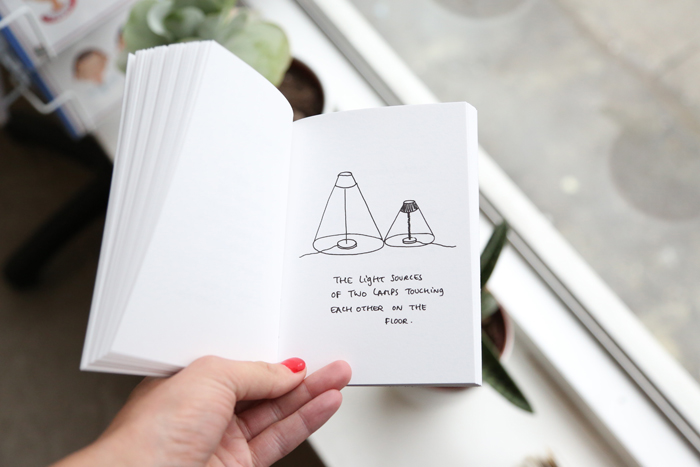 THE LIGHT SOURCES
OF TWO LAMPS TOUCHING
EACH OTHER ON THE
FLOOR.